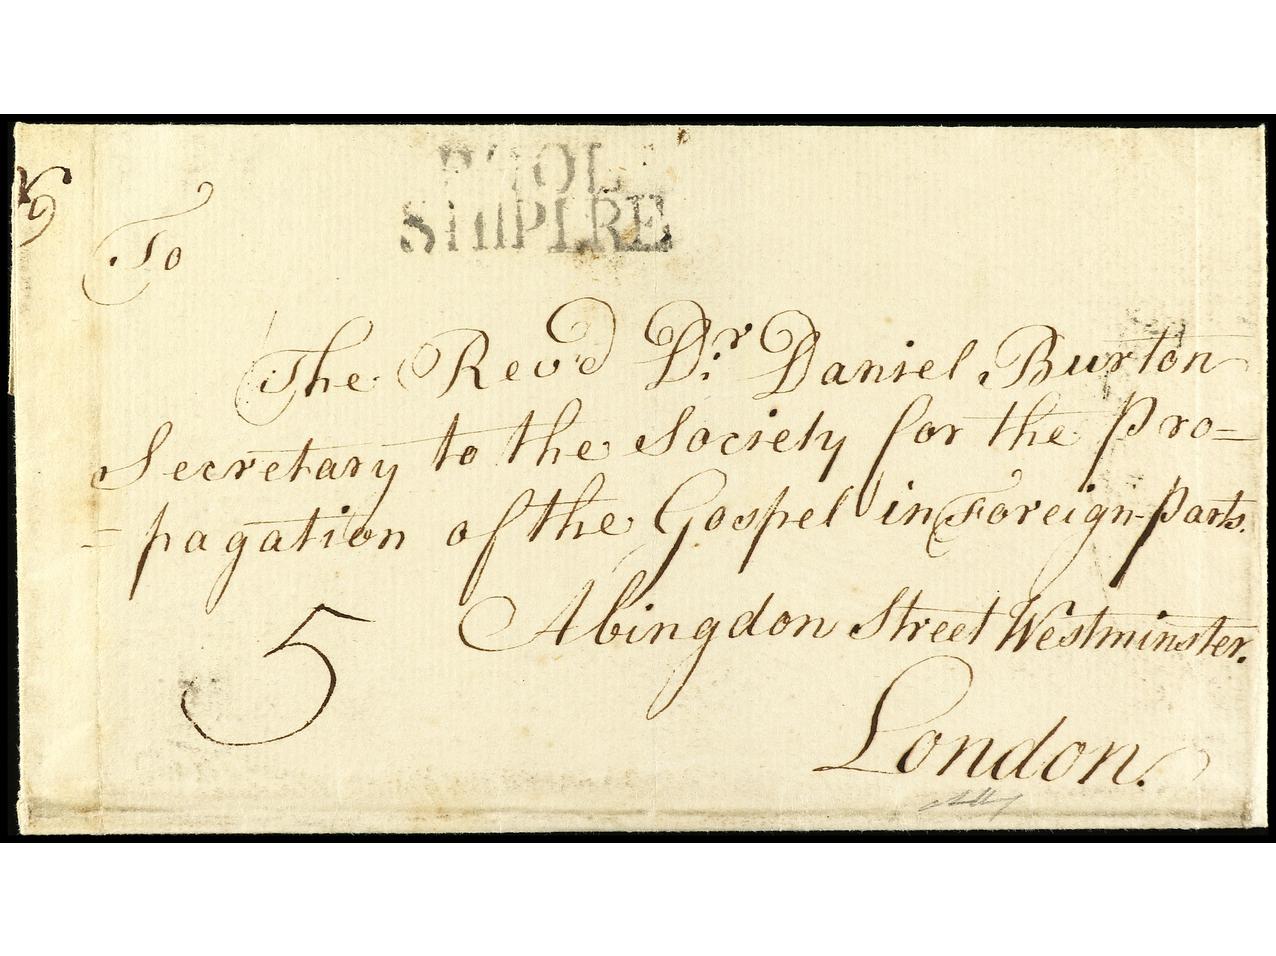 SHIP LRE
To
The Revd Dr. Daniel Burton
Secretary to the Society for the Pro=
=pagation of the Gospel in Foreign Parts.
5 Abingdon Street Westminster.
London.